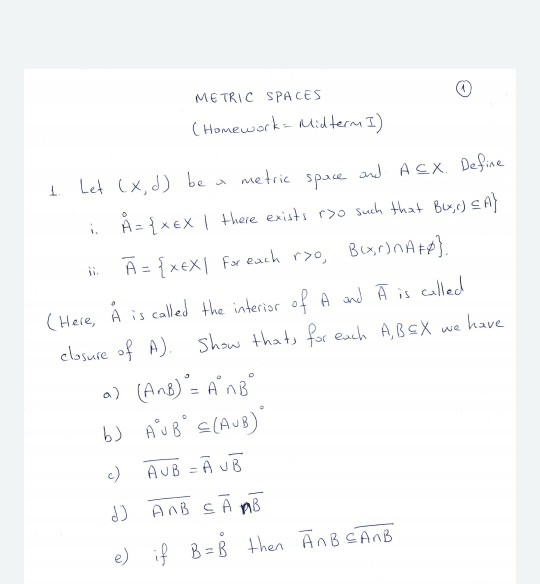 ①
METRIC SPACES
(Homework = Midterm I)
1. Let (X,d) be a metric space and A⊆X. Define
i. Å = {x∈X | there exists r>0 such that B(x,r) ⊆ A}
ii. A̅ = {x∈X | For each r>0, B(x,r)∩A≠∅}.
(Here, Å is called the interior of A and A̅ is called
closure of A). Show that, for each A,B⊆X we have
a) (A∩B)° = A°∩B°
b) A°∪B° ⊆ (A∪B)°
c) \overline{A∪B} = A̅ ∪ B̅
d) \overline{A∩B} ⊆ A̅ ∩ B̅
e) if B = B̊ then A̅∩B ⊆ \overline{A∩B}